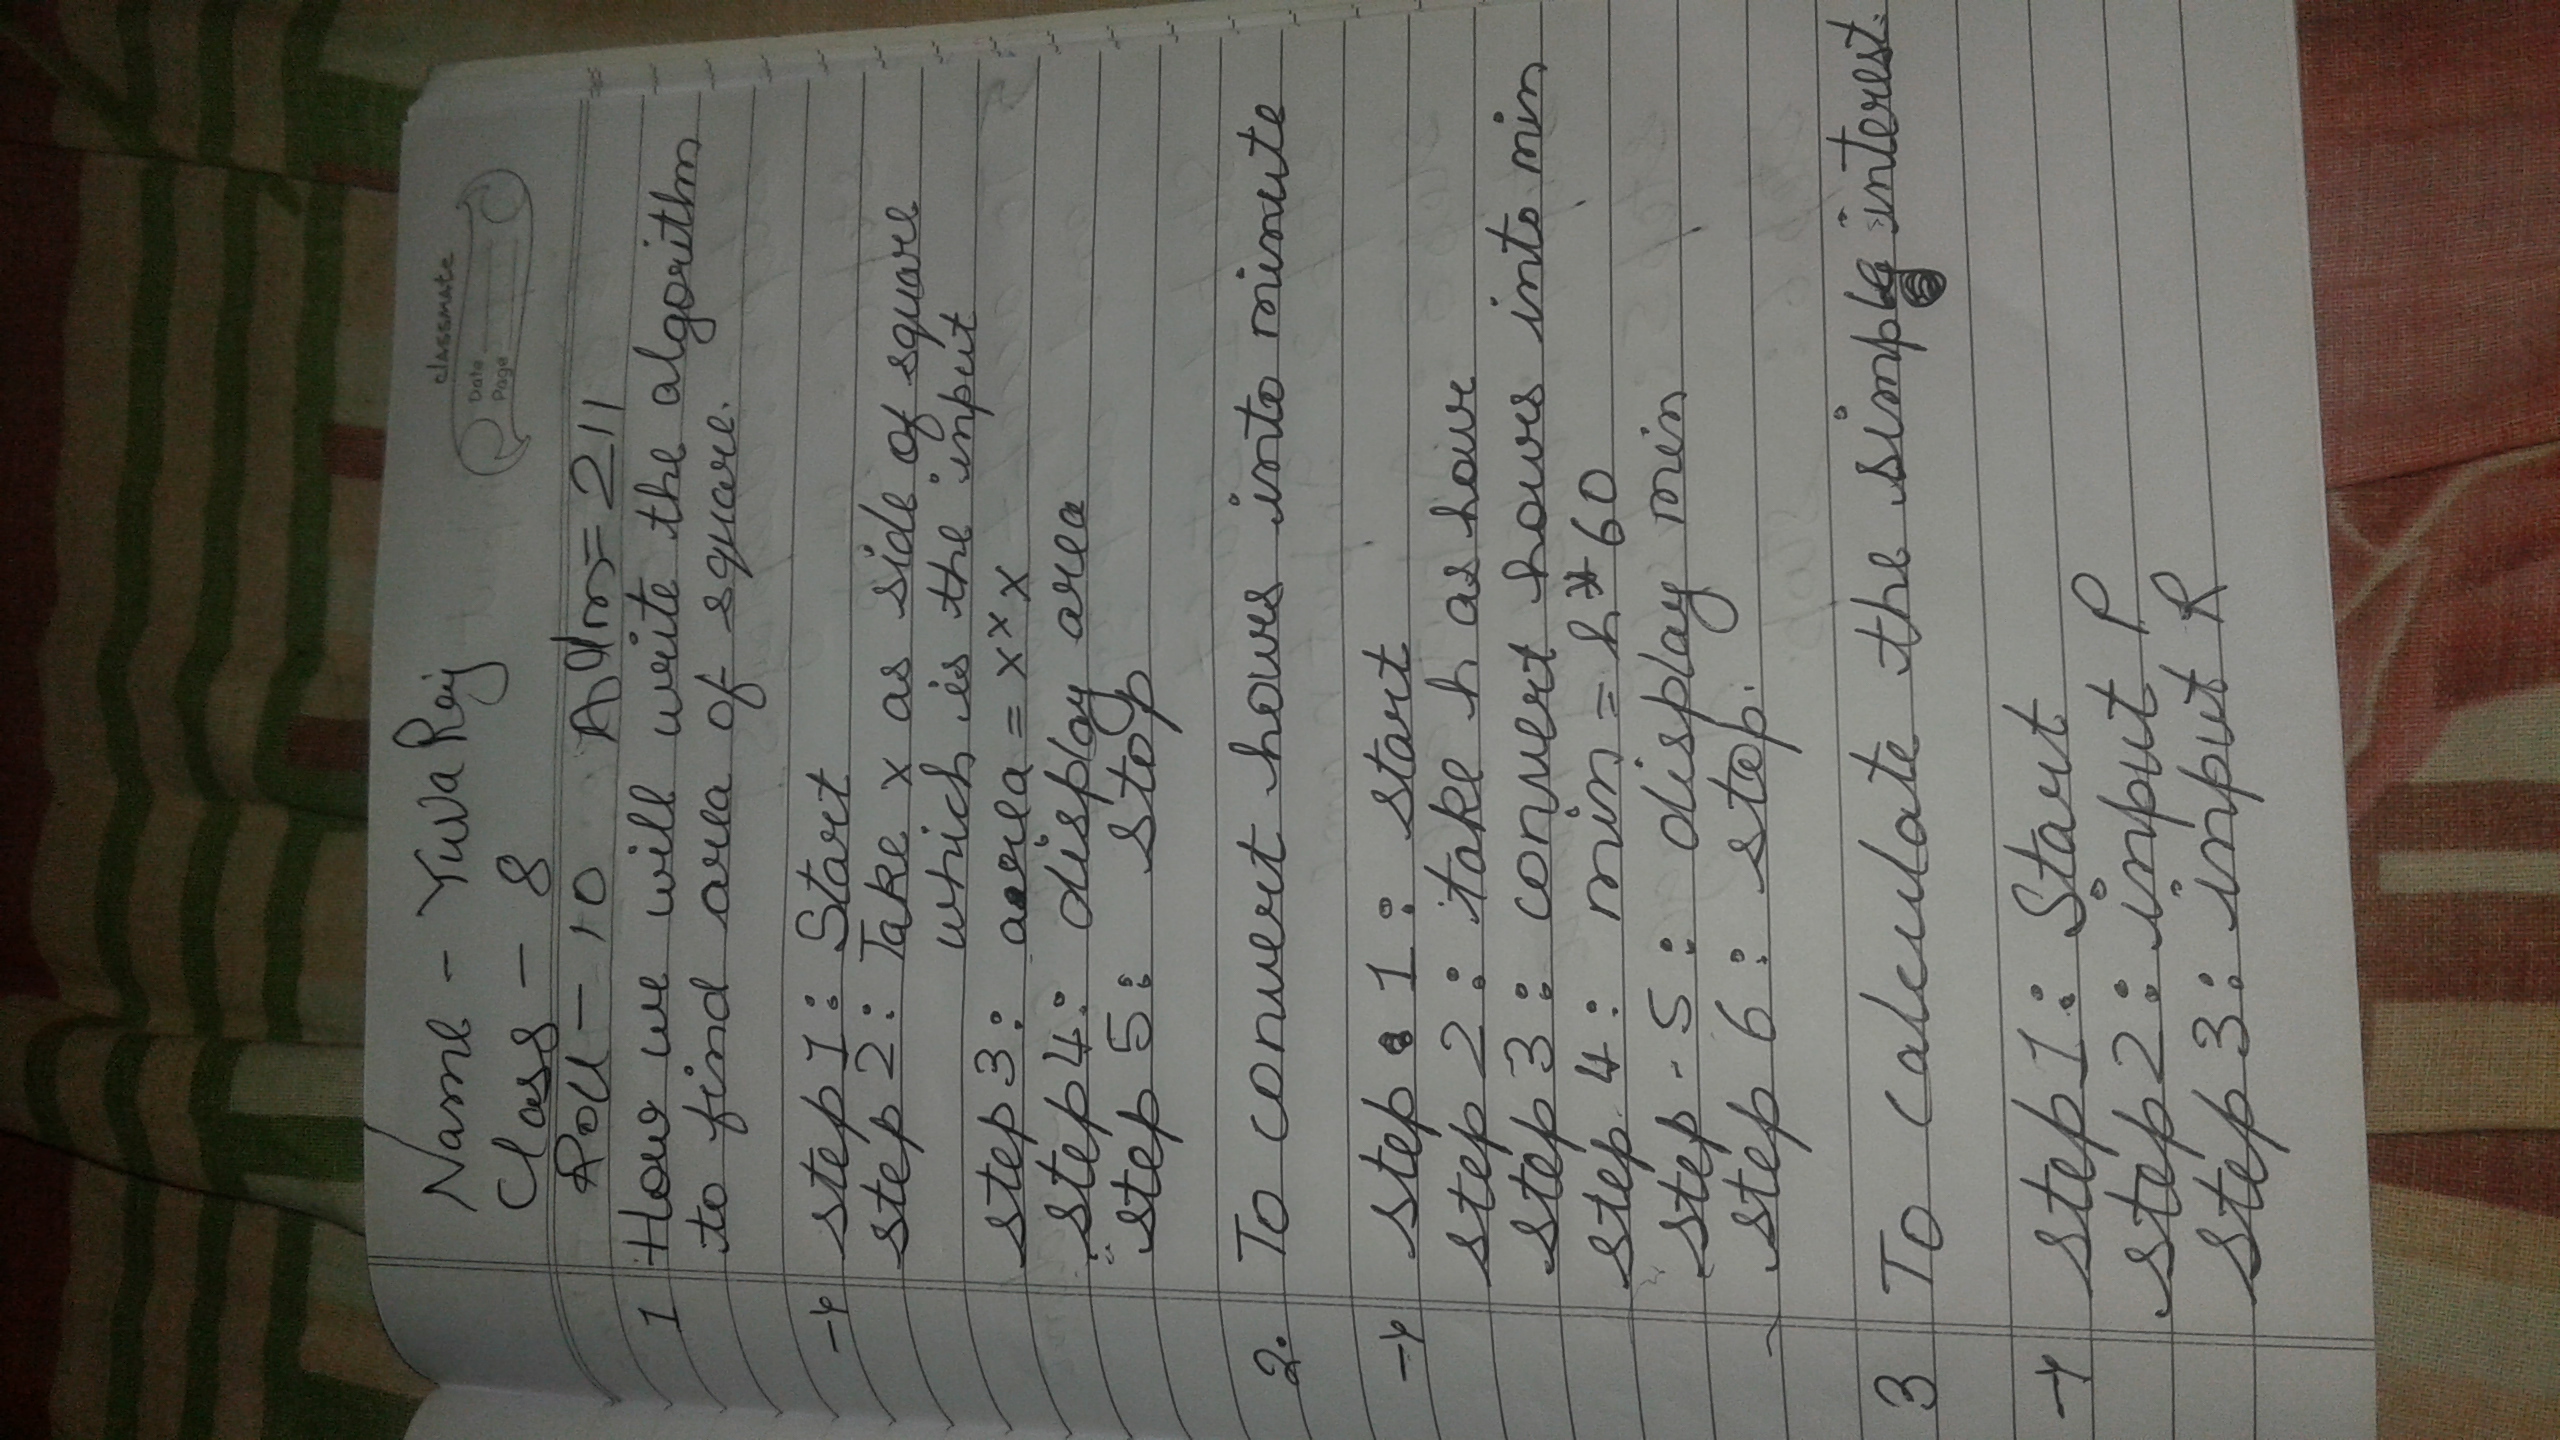 Name - Yuva Raj
classmate
Date
Page
Class - 8
Roll - 10 Adm = 211
1 How we will write the algorithm
to find area of square.
→ step 1: Start
step 2: Take x as side of square
which is the input
step 3: area = x*x
step 4: display area
step 5: stop
2. To convert hours into minute
→ step 1: start
step 2: take h as hour
step 3: convert hours into min
step 4: min = h*60
step - 5: display min
step 6: stop.
3 To calculate the simple interest.
→ step 1: Start
step 2: input P
step 3: input R